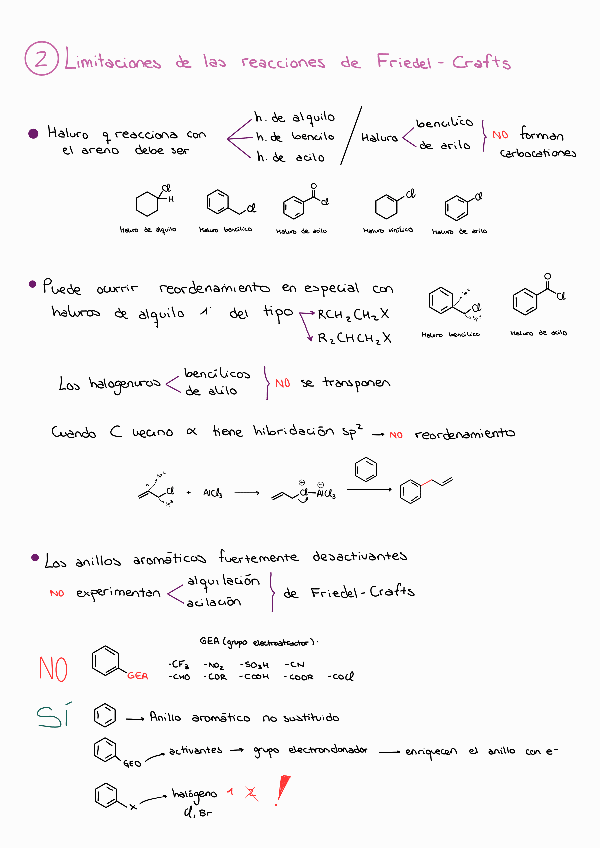 2 Limitaciones de las reacciones de Friedel-Crafts
Haluro q reacciona con
el areno debe ser
h. de alquilo
h. de bencilo
h. de acilo
Haluro
bencílico
de arilo
NO forman
carbocationes
Cl
H
Cl
O
Cl
Cl
Cl
Haluro de alquilo
Haluro bencílico
Haluro de acilo
Haluro vinílico
Haluro de arilo
Puede ocurrir reordenamiento en especial con
haluros de alquilo 1º del tipo
RCH2CH2X
R2CHCH2X
Cl
O
Cl
Haluro bencílico
Haluro de acilo
Los halogenuros
bencílicos
de alilo
NO se transponen
Cuando C vecino α tiene hibridación sp² → NO reordenamiento
Cl + AlCl3 → Cl-AlCl3
⊕ ⊖
Los anillos aromáticos fuertemente desactivantes
NO experimentan
alquilación
acilación
de Friedel-Crafts
GEA (grupo electroatractor).
NO
GEA
-CF3 -NO2 -SO3H -CN
-CHO -COR -COOH -COOR -COCl
SÍ
→ Anillo aromático no sustituido
GED
activantes → grupo electrondonador → enriquecen el anillo con e-
X
halógeno 1 2 !
Cl, Br